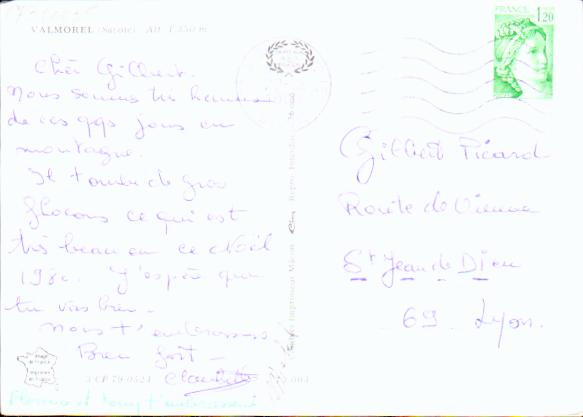 VALMOREL (Savoie) Alt. 1.350 m
Cher Gilbert.
Nous sommes très heureux
de ces qqs jours en
montagne.
Il tombe de gros
flocons ce qui est
très beau en ce Noël
1980. J'espère que
tu vas bien.
nous t'embrassons
Bien fort -
Claudette
FRANCE
1,20
Gilbert Picard
Route de Vienne
St Jean de Dieu
69 Lyon.